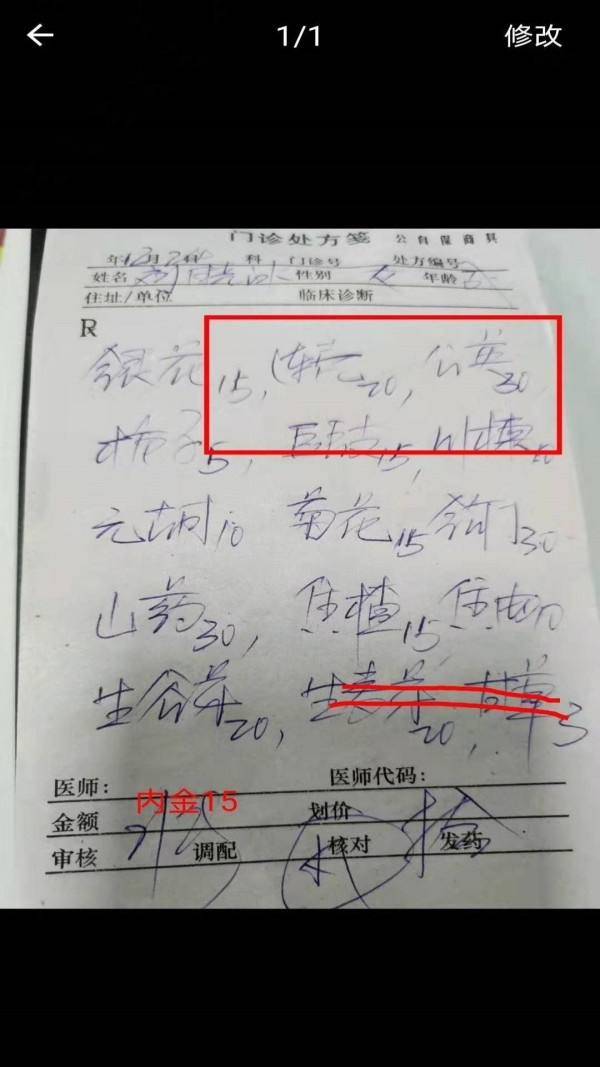 1/1 修改
门诊处方笺 公自保商其
年12月2 科 门诊号 处方编号
姓名 性别 女 年龄
住址/单位 临床诊断
R
银花15, 连壳20, 公英30
栀子5, 15, 川楝
元胡10 菊花15 钩丁30
山药30, 焦楂15 焦曲10
生谷芽20, 生麦芽20, 甘草3
医师: 医师代码:
内金15
金额 划价
审核 调配 核对 发药